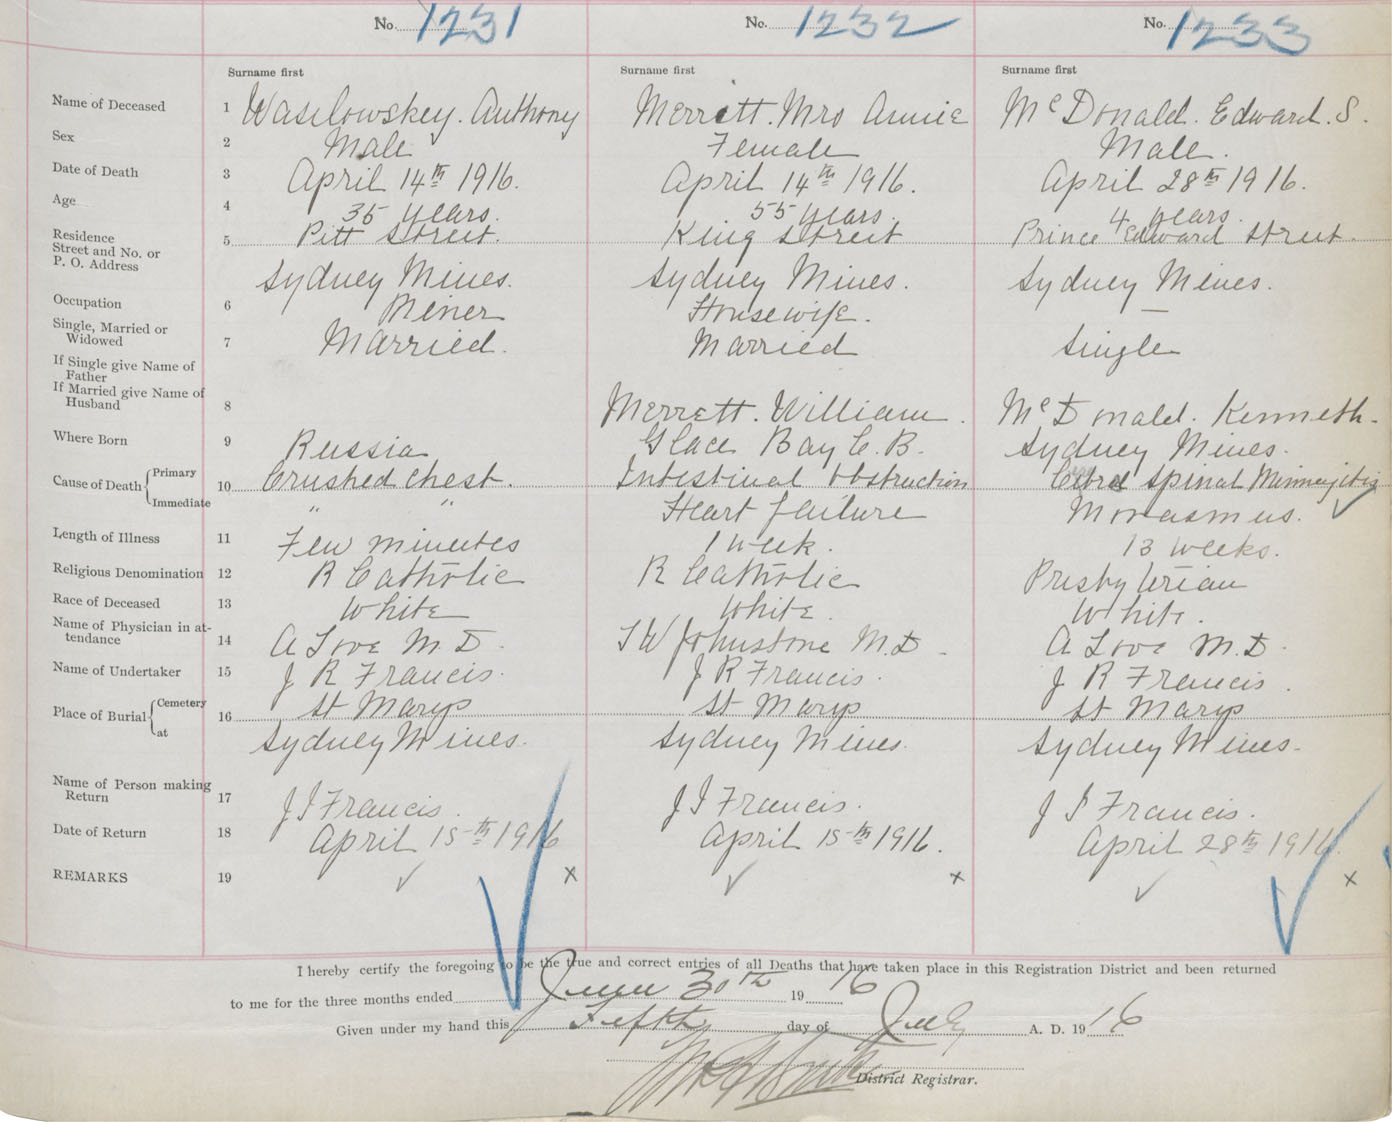 No. 1231 No. 1232 No. 1233
Surname first Surname first Surname first
Name of Deceased 1 Waselowskey. Anthony Merrett. Mrs Annie McDonald. Edward. S.
Sex 2 Male Female Male.
Date of Death 3 April 14th 1916. April 14th 1916. April 28th 1916.
Age 4 35 years. 55 years. 4 years.
Residence 5 Pitt Street. King Street Prince Edward Street.
Street and No. or
P. O. Address Sydney Mines. Sydney Mines. Sydney Mines.
Occupation 6 Miner Housewife. —
Single, Married or
Widowed 7 Married. Married Single
If Single give Name of
Father
If Married give Name of
Husband 8 Merrett. William. McDonald. Kenneth.
Where Born 9 Russia Glace Bay C. B. Sydney Mines.
Cause of Death Primary 10 Crushed Chest. Intestinal Obstruction Spinal
Immediate " " Heart failure Morasmus.
Length of Illness 11 Few minutes 1 week. 13 weeks.
Religious Denomination 12 R Catholic R Catholic Presbyterian
Race of Deceased 13 White White. White.
Name of Physician in at-
tendance 14 A Love M. D. Johnstone M. D. A Love M. D.
Name of Undertaker 15 J R Francis. J R Francis. J R Francis.
Place of Burial Cemetery 16 St Marys St Marys St Marys
at Sydney Mines. Sydney Mines. Sydney Mines.
Name of Person making
Return 17 J J Francis. J J Francis. J J Francis.
Date of Return 18 April 15th 1916 April 15th 1916. April 28th 1916.
REMARKS 19 x x x
I hereby certify the foregoing to be the true and correct entries of all Deaths that have taken place in this Registration District and been returned
to me for the three months ended June 30th 1916
Given under my hand this Fifth day of July A. D. 1916
District Registrar.